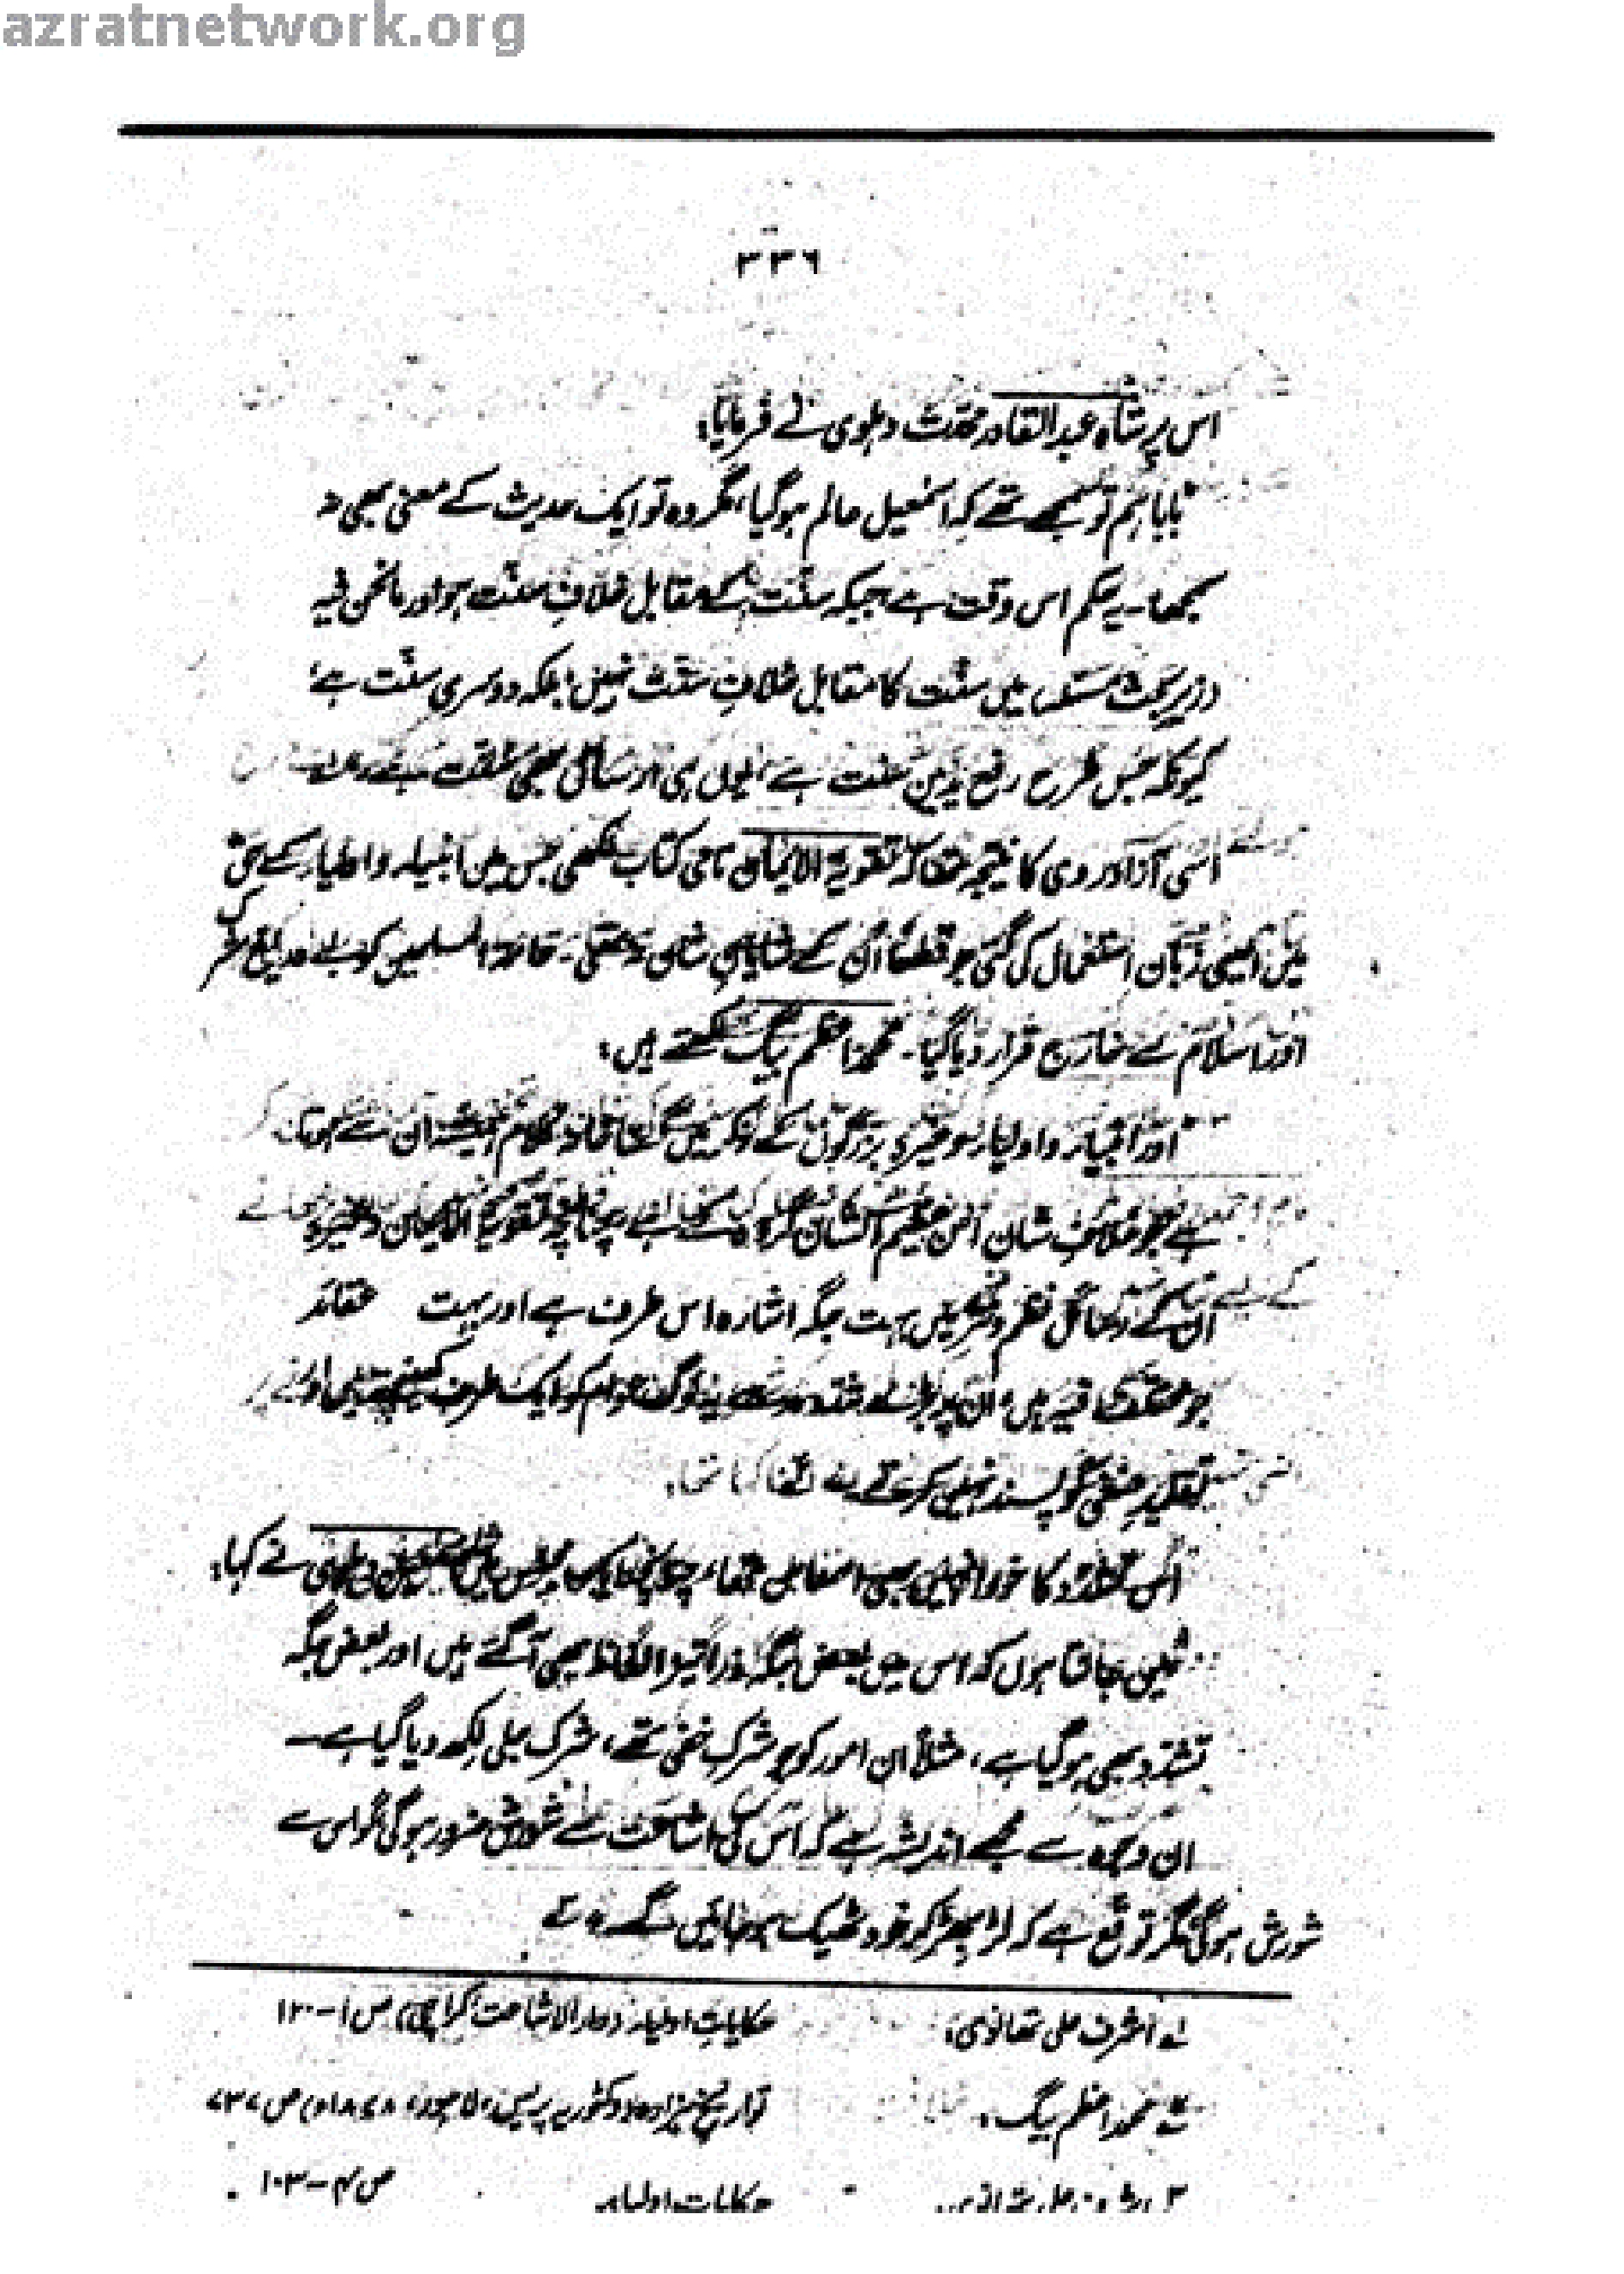 azratnetwork.org
۳۳۶
اس پر شاہ عبدالقادر محدث دہلوی نے فرمایا:
"بابا ہم تو سمجھے تھے کہ اسمٰعیل عالم ہوگیا، مگر وہ تو ایک حدیث کے معنی بھی نہ
سمجھا۔ یہ حکم اس وقت ہے جبکہ سنّت کے مقابل خلافِ سنّت ہو اور مانحن فیہ
(زیر بحث مسئلہ) میں سنّت کا مقابل خلافِ سنّت نہیں، بلکہ دوسری سنّت ہے،
کیونکہ جس طرح رفع یدین سنت ہے، یوں ہی ارسال بھی سنّت ہے۔
اسی آزاد روی کا نتیجہ تھا کہ تقویۃ الایمان نامی کتاب لکھی جس میں انبیاء و اولیاء کے حق
میں ایسی زبان استعمال کی گئی جو قطعاً ان کے شایانِ شان نہ تھی۔ عامۃ المسلمین کو بے دریغ مشرک
اور اسلام سے خارج قرار دیا گیا۔ محمد اعظم بیگ لکھتے ہیں:
"اور انبیاء و اولیاء وغیرہ بزرگوں کے ذکر میں
ہے جو خلافِ شان اُن عظیم الشان تقویۃ الایمان وغیرہ
ان کے رسائل نظم و نثر میں بہت جگہ اشارہ اس طرف ہے اور بہت عقائد
جو ان پر لوگ عوام کو ایک طرف کھینچتے ہیں اور
تقلیدِ حنفی کو پسند نہیں کرتے
اس تشدّد کا خود انہیں بھی احساس تھا، چنانچہ ایک مجلس میں نے کہا:
"میں جانتا ہوں کہ اس میں بعض جگہ ذرا تیز الفاظ بھی آگئے ہیں اور بعض جگہ
تشدّد بھی ہوگیا ہے، مثلاً ان امور کو جو شرک خفی تھے، شرک جلی لکھ دیا گیا ہے۔
ان وجوہ سے مجھے اندیشہ ہے کہ اس کی اشاعت سے شورش ضرور ہوگی گو اس سے
شورش ہوگی مگر توقع ہے کہ لڑ بھڑ کر خود ٹھیک ہوجائیں گے۔
لہ اشرف علی تھانوی: حکایاتِ اولیاء (دارالاشاعت کراچی) ص ۱-۱۲۰
محمد اعظم بیگ: تواریخ ہزارہ (وکٹوریہ پریس، لاہور،
حکایات اولیاء ص ۴-۱۰۳